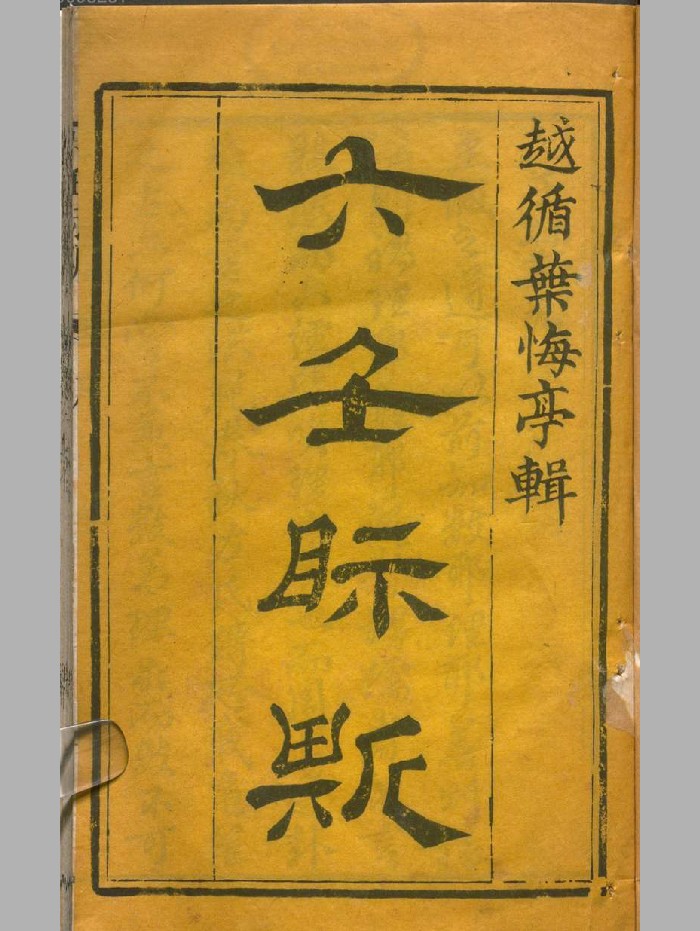 越循葉悔亭輯
六壬眎斯